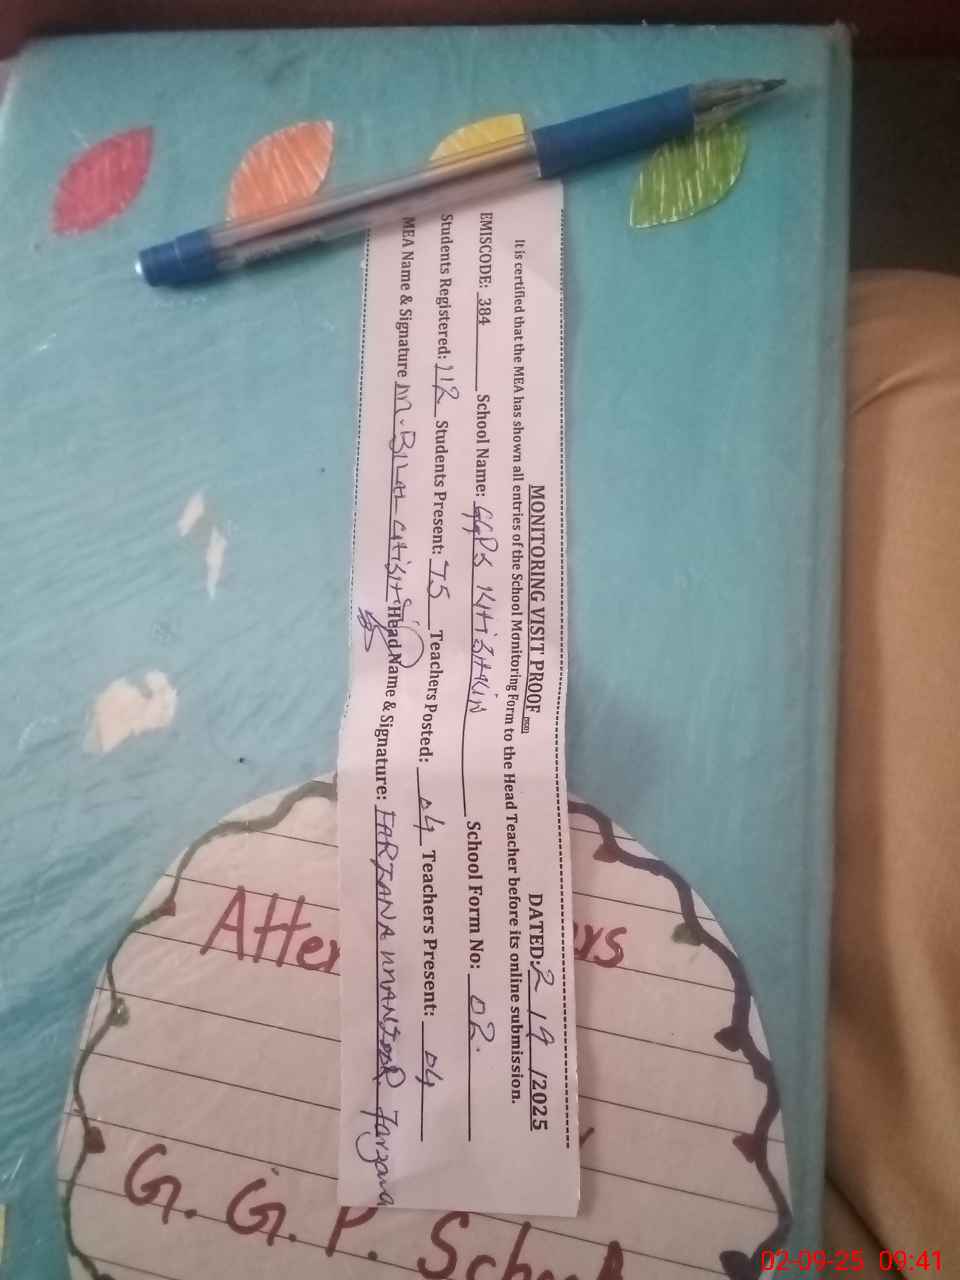 MONITORING VISIT PROOF DATED: 2 / 9 /2025
It is certified that the MEA has shown all entries of the School Monitoring Form to the Head Teacher before its online submission.
EMISCODE: 384 School Name: GGPS KHISHKIN School Form No: 02
Students Registered: 112 Students Present: 75 Teachers Posted: 04 Teachers Present: 04
MEA Name & Signature M. BILAL Head Name & Signature: FARZANA Farzana
Atten
rs
G. G. P. School
02-09-25 09:41